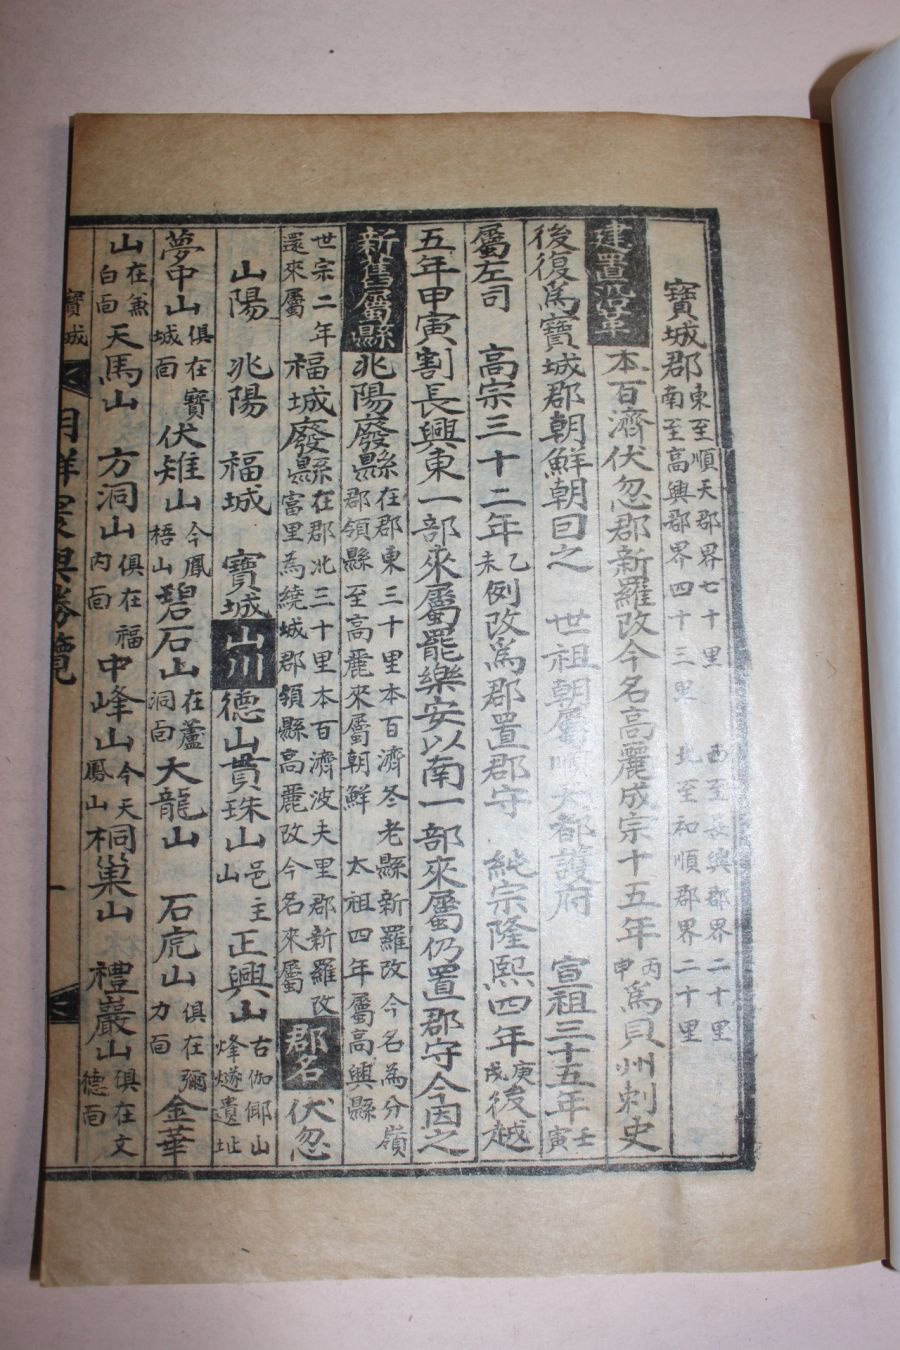 寶城郡 東至順天郡界七十里 西至長興郡界二十里 南至高興郡界四十三里 北至和順郡界二十里
建置沿革 本百濟伏忽郡新羅改今名高麗成宗十五年丙申爲貝州刺史
後復爲寶城郡朝鮮朝因之 世祖朝屬順天都護府 宣祖三十五年壬寅
屬左司 高宗三十二年乙未例改爲郡置郡守 純宗隆熙四年庚戌後越
五年甲寅割長興東一部來屬罷樂安以南一部來屬仍置郡守今因之
新舊屬縣 兆陽廢縣 在郡東三十里本百濟冬老縣新羅改今名為分嶺郡領縣至高麗來屬朝鮮 太祖四年屬高興縣
世宗二年還來屬 福城廢縣 在郡北三十里本百濟波夫里郡新羅改富里為綾城郡領縣高麗改今名來屬 郡名 伏忽
山陽 兆陽 福城 寶城 山川 德山 貫珠山 邑主山 正興山 古伽倻山烽燧遺址
夢中山 俱在寶城面 伏雉山 今鳳梧山 碧石山 在蘆洞面 大龍山 石虎山 俱在彌力面 金華
山 在兼白面 天馬山 方洞山 俱在福內面 中峰山 今天鳳山 桐巢山 禮巖山 俱在文德面
寶城 朝鮮寰輿勝覽 一